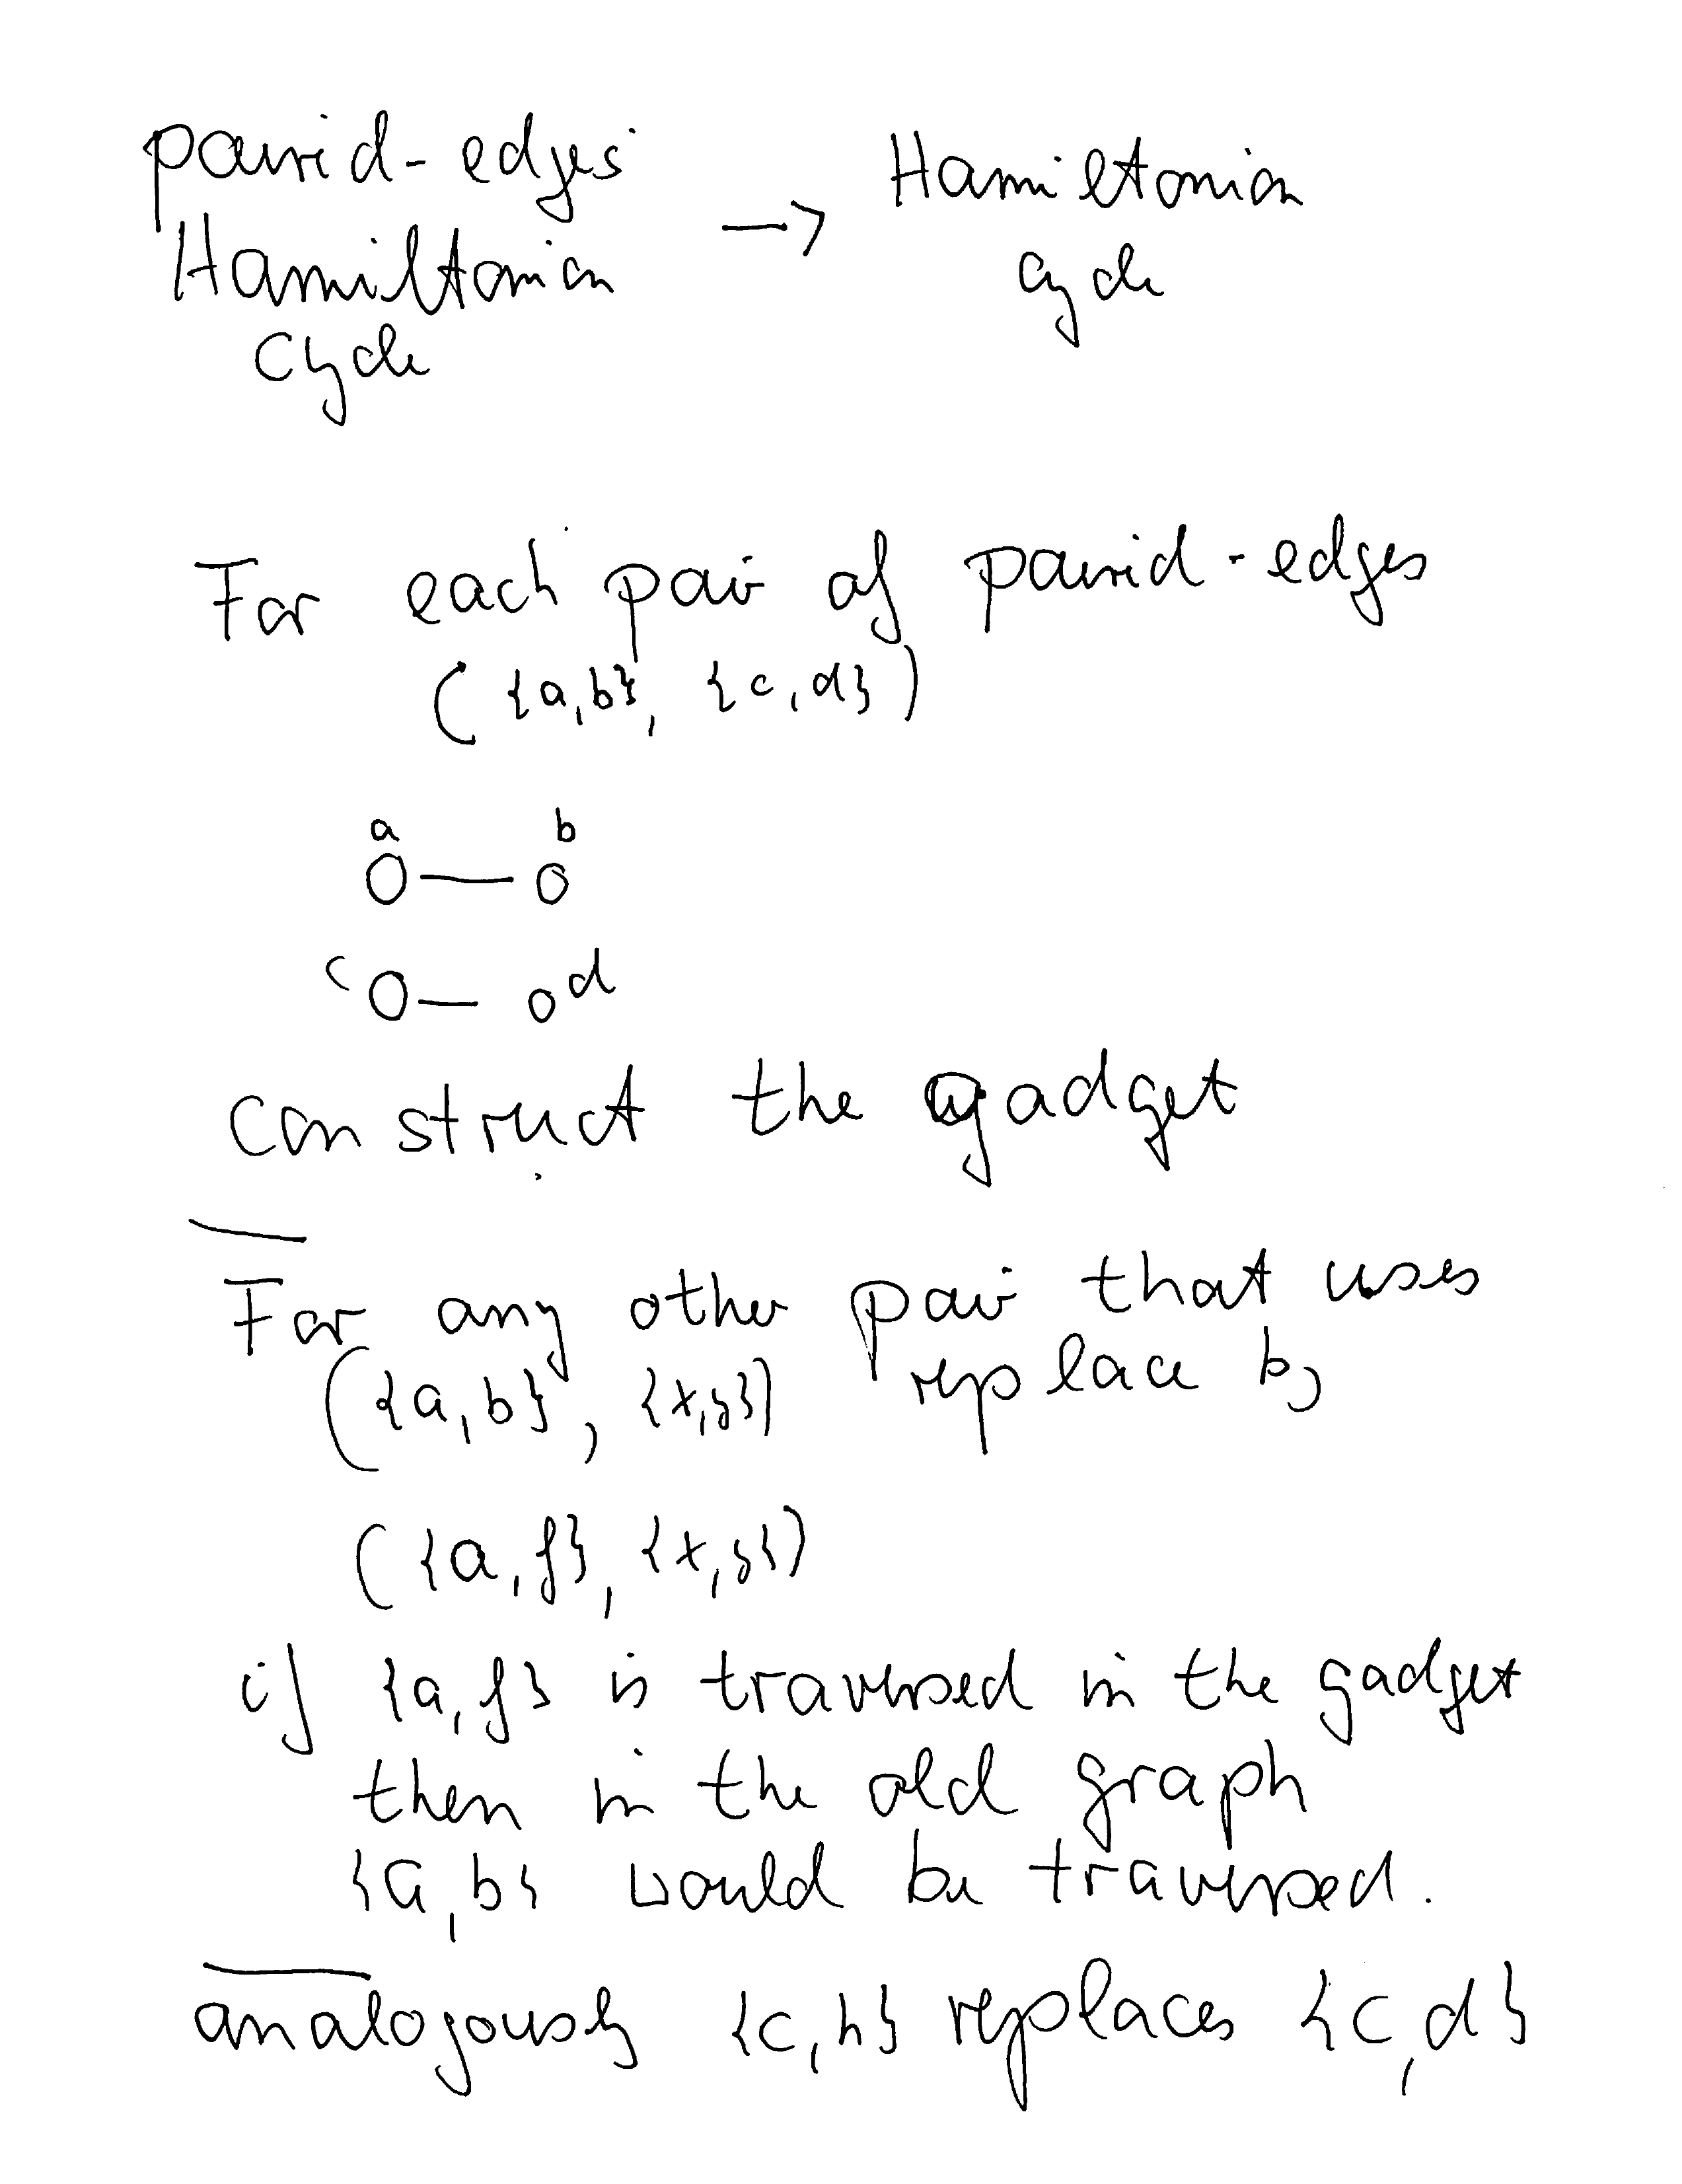 paired-edges
Hamiltonian
cycle
→ Hamiltonian
cycle
For each pair of paired-edges
( {a,b}, {c,d} )
a b
c d
construct the gadget
For any other pair that uses
({a,b}, {x,y}) replace by
({a,f}, {x,y})
if {a,f} is traversed in the gadget
then in the old graph
{a,b} would be traversed.
analogously {c,h} replaces {c,d}